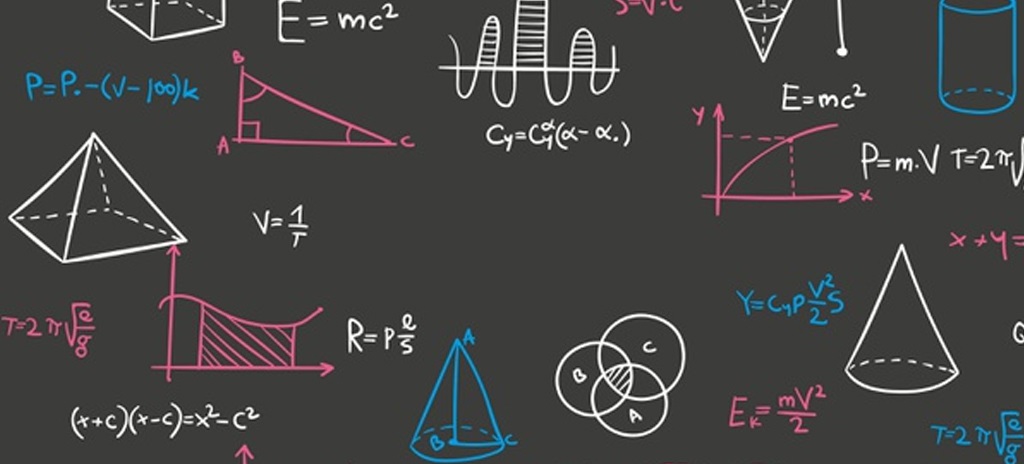 E=mc²
S=V·t
P=P.-(V-100)k
B
A
C
Cy=Cyᵅ(α-α.)
E=mc²
y
x
P=m.V
T=2π√
V=1/T
x+y=
T=2π√e/g
R=P e/S
Y=CyP V²/2 S
A
B
C
B
C
A
Q
(x+c)(x-c)=x²-c²
Eₖ=mV²/2
T=2π√e/g